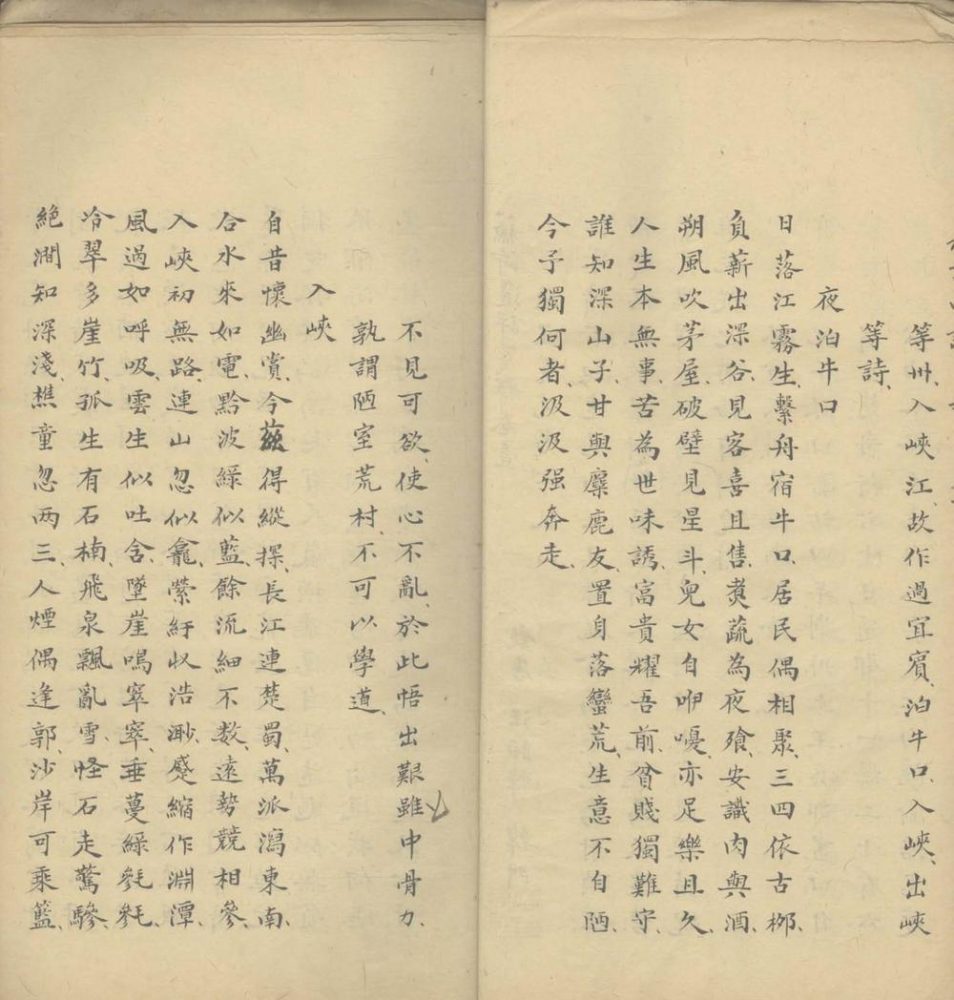 等卅、入峽江、故作過宜賓、泊牛口、入峽、出峽
等詩、
夜泊牛口
日落江霧生、繫舟宿牛口、居民偶相聚、三四依古栁、
負薪出深谷、見客喜且售、煑蔬為夜飱、安識肉與酒、
朔風吹茅屋、破壁見星斗、兒女自咿嚘、亦足樂且久、
人生本無事、苦為世味誘、富貴耀吾前、貧賤獨難守、
誰知深山子、甘與麋鹿友、置身落蠻荒、生意不自陋、
今予獨何者、汲汲强奔走、
不見可欲、使心不亂、於此悟出艱雖中骨力、
孰謂陋室荒村、不可以學道、
入峽
自昔懷幽賞、今茲得縱探、長江連楚蜀、萬派瀉東南、
合水來如電、黔波綠似藍、餘流細不数、遠勢競相參、
入峽初無路、連山忽似龕、縈紆収浩渺、蹙縮作淵潭、
風過如呼吸、雲生似吐含、墜崖鳴窣窣、垂蔓綠毿毿、
冷翠多崖竹、孤生有石楠、飛泉飄亂雪、怪石走驚驂、
絶澗知深淺、樵童忽兩三、人煙偶逢郭、沙岸可乘籃、